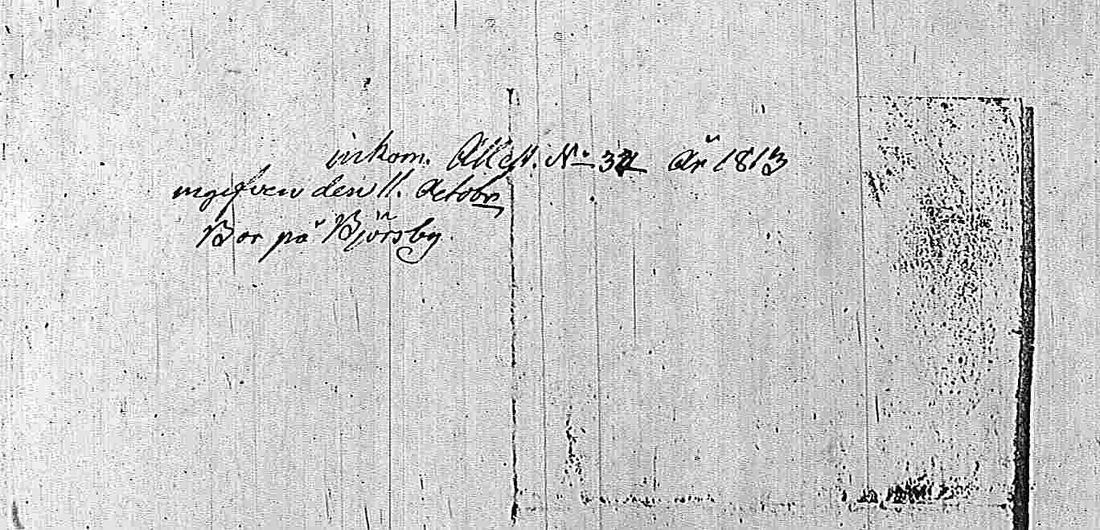 inkom. Attest. No 34 År 1813
ingifven den 11. Octobr.
Bor på Björsby.